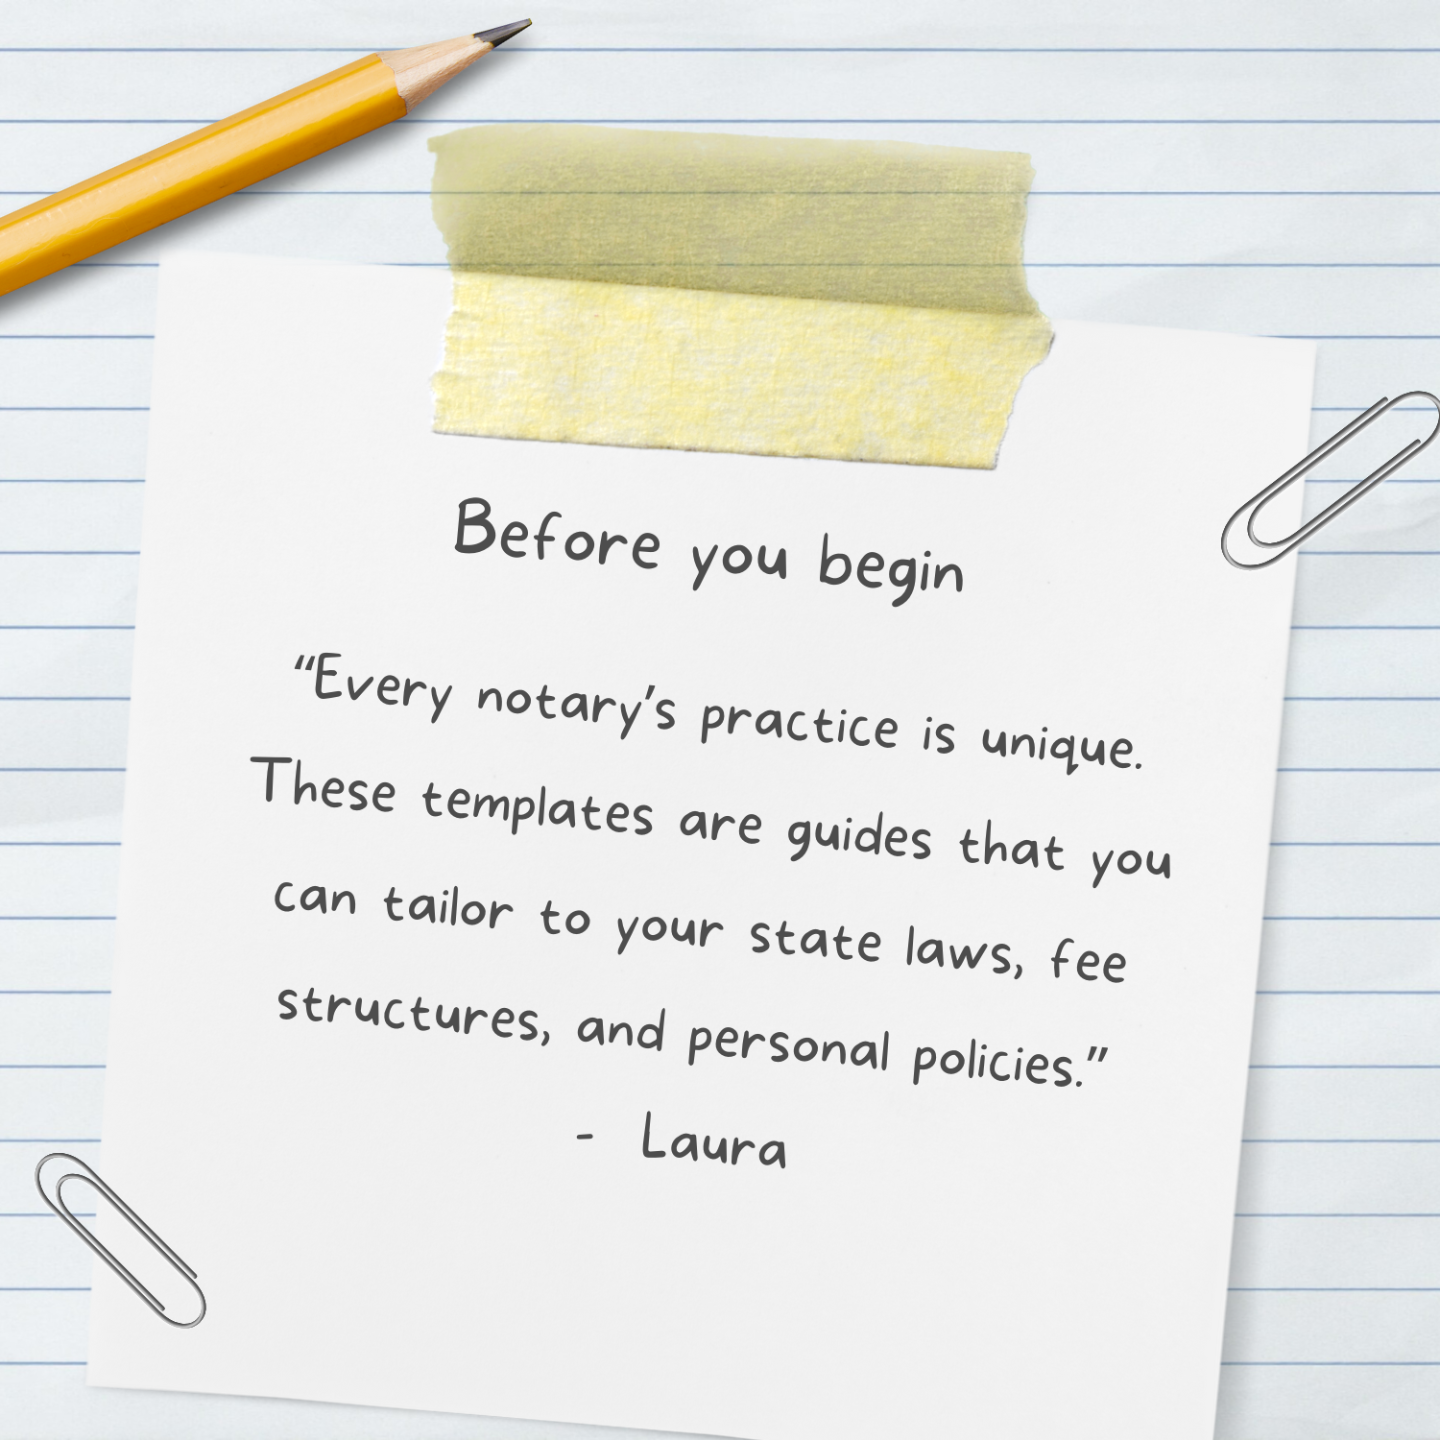 Before you begin
“Every notary’s practice is unique.
These templates are guides that you
can tailor to your state laws, fee
structures, and personal policies.”
- Laura